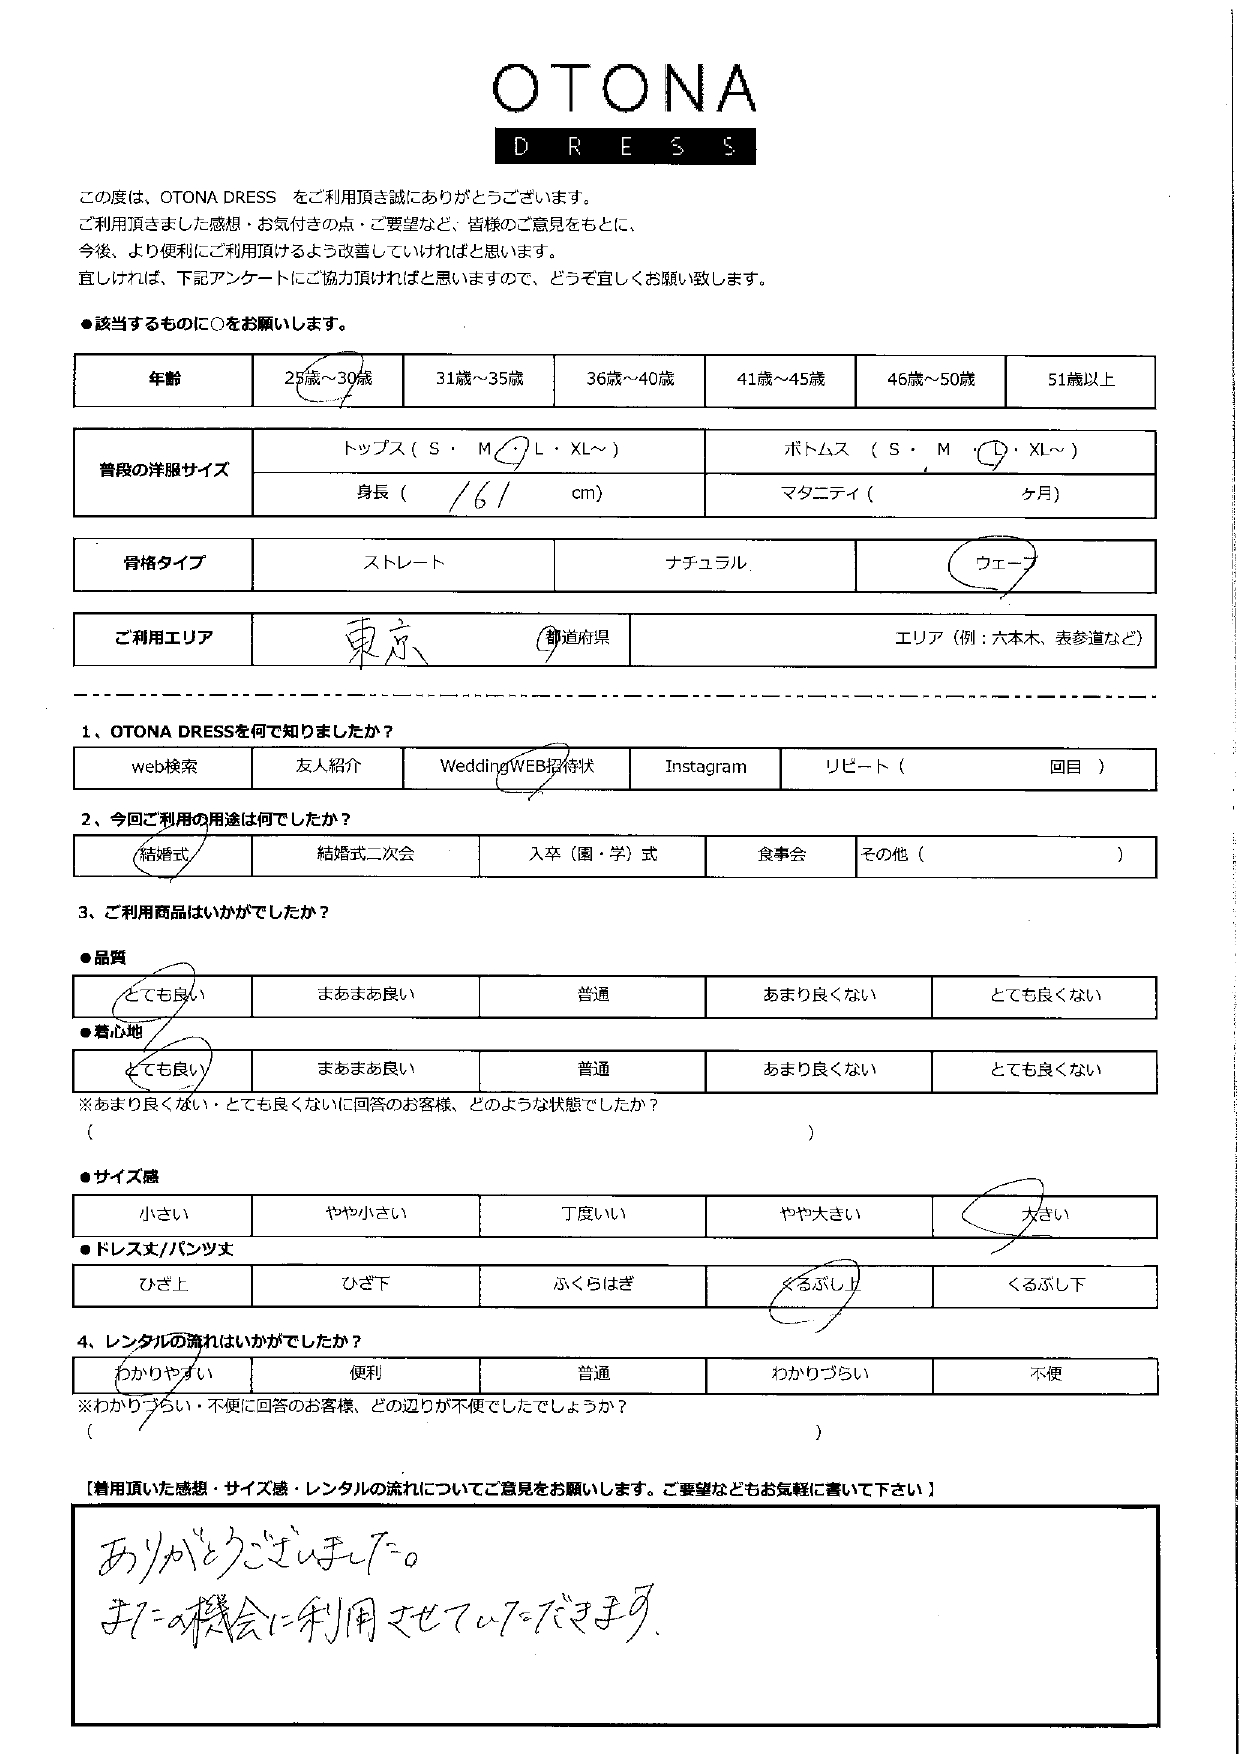 OTONA
DRESS
この度は、OTONA DRESS　をご利用頂き誠にありがとうございます。
ご利用頂きました感想・お気付きの点・ご要望など、皆様のご意見をもとに、
今後、より便利にご利用頂けるよう改善していければと思います。
宜しければ、下記アンケートにご協力頂ければと思いますので、どうぞ宜しくお願い致します。
●該当するものに○をお願いします。
年齢 25歳～30歳 31歳～35歳 36歳～40歳 41歳～45歳 46歳～50歳 51歳以上
普段の洋服サイズ トップス ( S ・ M ・ L ・ XL～ ) ボトムス ( S ・ M ・ L ・ XL～ )
身長 ( 161 cm) マタニティ ( ヶ月)
骨格タイプ ストレート ナチュラル ウェーブ
ご利用エリア 東京 都道府県 エリア（例：六本木、表参道など）
1、OTONA DRESSを何で知りましたか？
web検索 友人紹介 WeddingWEB招待状 Instagram リピート（ 回目 ）
2、今回ご利用の用途は何でしたか？
結婚式 結婚式二次会 入卒（園・学）式 食事会 その他（ ）
3、ご利用商品はいかがでしたか？
●品質
とても良い まあまあ良い 普通 あまり良くない とても良くない
●着心地
とても良い まあまあ良い 普通 あまり良くない とても良くない
※あまり良くない・とても良くないに回答のお客様、どのような状態でしたか？
（ ）
●サイズ感
小さい やや小さい 丁度いい やや大きい 大きい
●ドレス丈/パンツ丈
ひざ上 ひざ下 ふくらはぎ くるぶし上 くるぶし下
4、レンタルの流れはいかがでしたか？
わかりやすい 便利 普通 わかりづらい 不便
※わかりづらい・不便に回答のお客様、どの辺りが不便でしたでしょうか？
（ ）
【着用頂いた感想・サイズ感・レンタルの流れについてご意見をお願いします。ご要望などもお気軽に書いて下さい】
ありがとうございました。
またの機会に利用させていただきます.